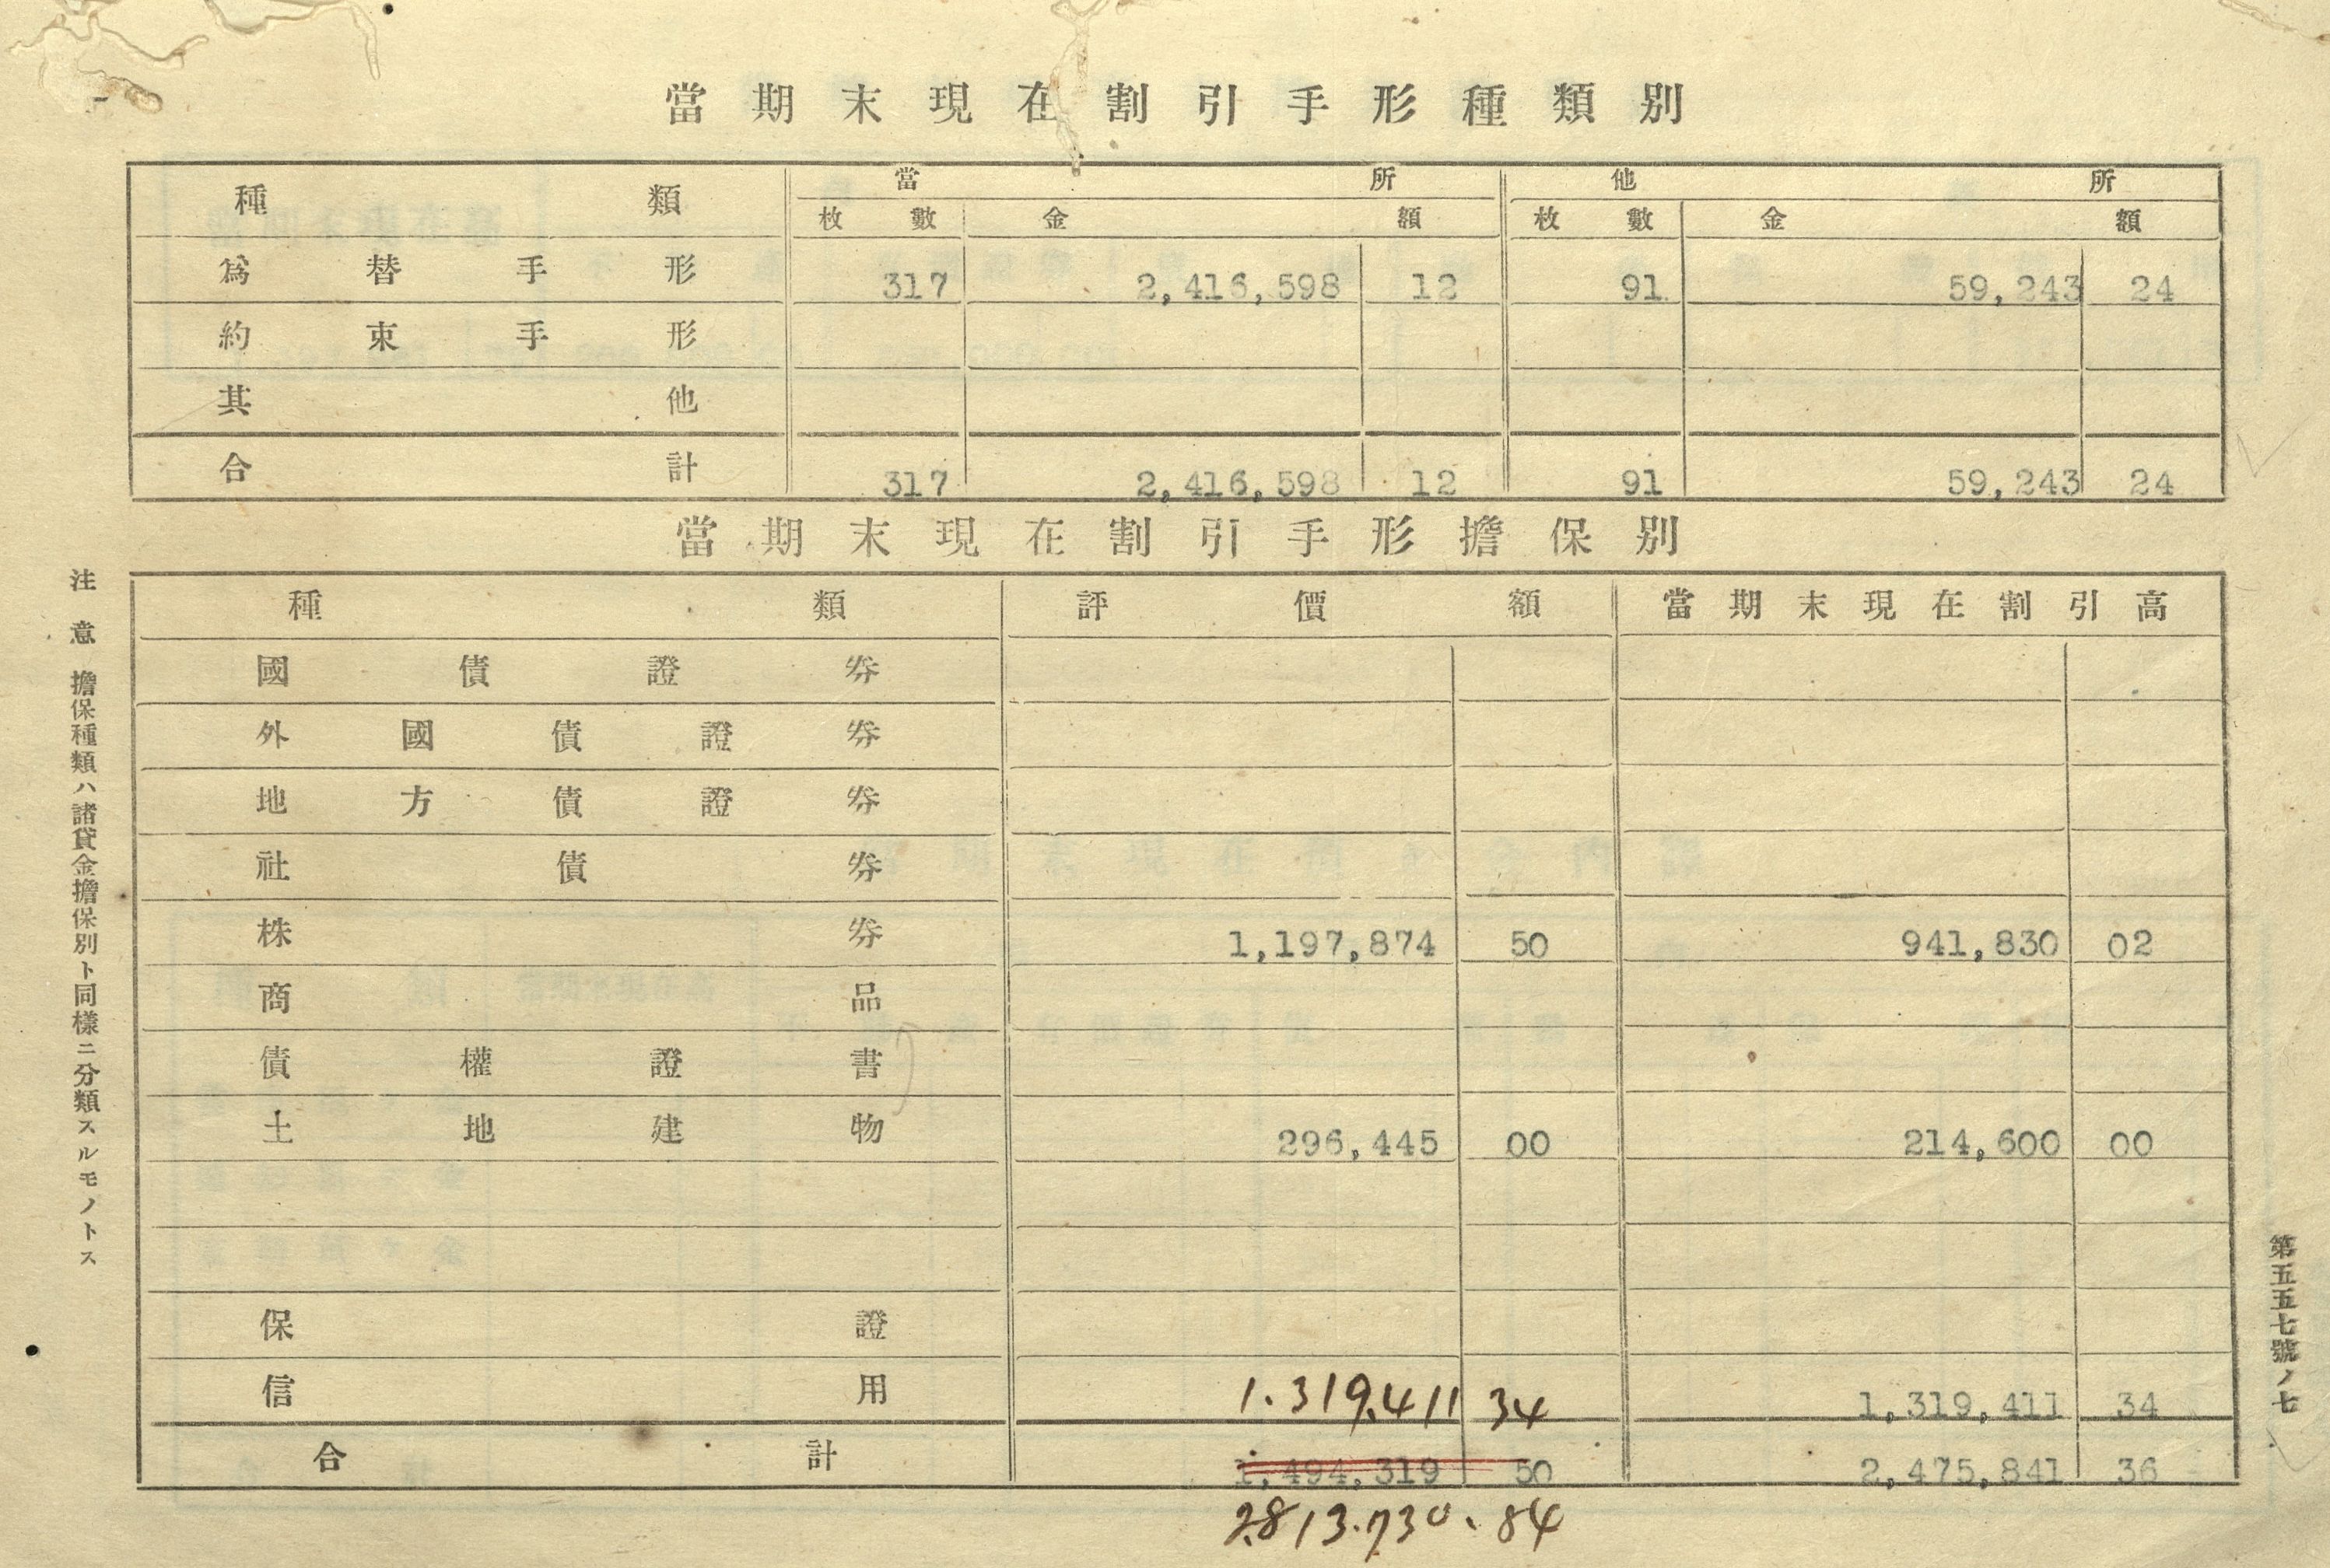 當期末現在割引手形種類別
種類 當所 他所
枚數 金額 枚數 金額
爲替手形 317 2,416,598 12 91 59,243 24
約束手形
其他
合計 317 2,416,598 12 91 59,243 24
當期末現在割引手形擔保別
種類 評價額 當期末現在割引高
國債證券
外國債證券
地方債證券
社債券
株券 1,197,874 50 941,830 02
商品
債權證書
土地建物 296,445 00 214,600 00
保證
信用 1.319.411 34 1,319,411 34
合計 1,494,319 50 2,475,841 36
2.813.730.84
注意 擔保種類ハ諸貸金擔保別ト同樣ニ分類スルモノトス
第五五七號ノ七